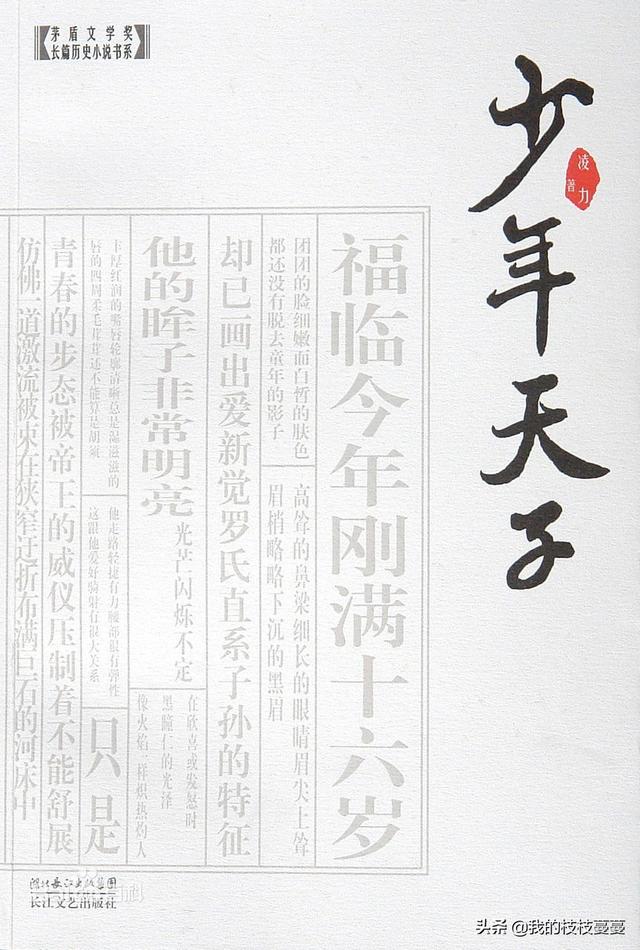 茅盾文学奖
长篇历史小说书系
少年天子
凌力
著
福临今年刚满十六岁
团团的脸细嫩而白皙的肤色
都还没有脱去童年的影子
高耸的鼻梁细长的眼睛眉尖上耸
眉梢略略下沉的黑眉
却已画出爱新觉罗氏直系子孙的特征
他的眸子非常明亮
光芒闪烁不定
在欣喜或发怒时
黑瞳仁的光泽
像火焰一样炽热灼人
丰厚红润的嘴唇轮廓清晰总是湿滋滋的
唇的四周柔毛茸茸还不能算是胡须
他走路轻捷有力腰部很有弹性
这跟他爱好骑射有很大关系
只是
青春的步态被帝王的威仪压制着不能舒展
仿佛一道激流被束在狭窄迂折布满巨石的河床中
湖北长江出版集团
长江文艺出版社
头条 @我的枝枝蔓蔓